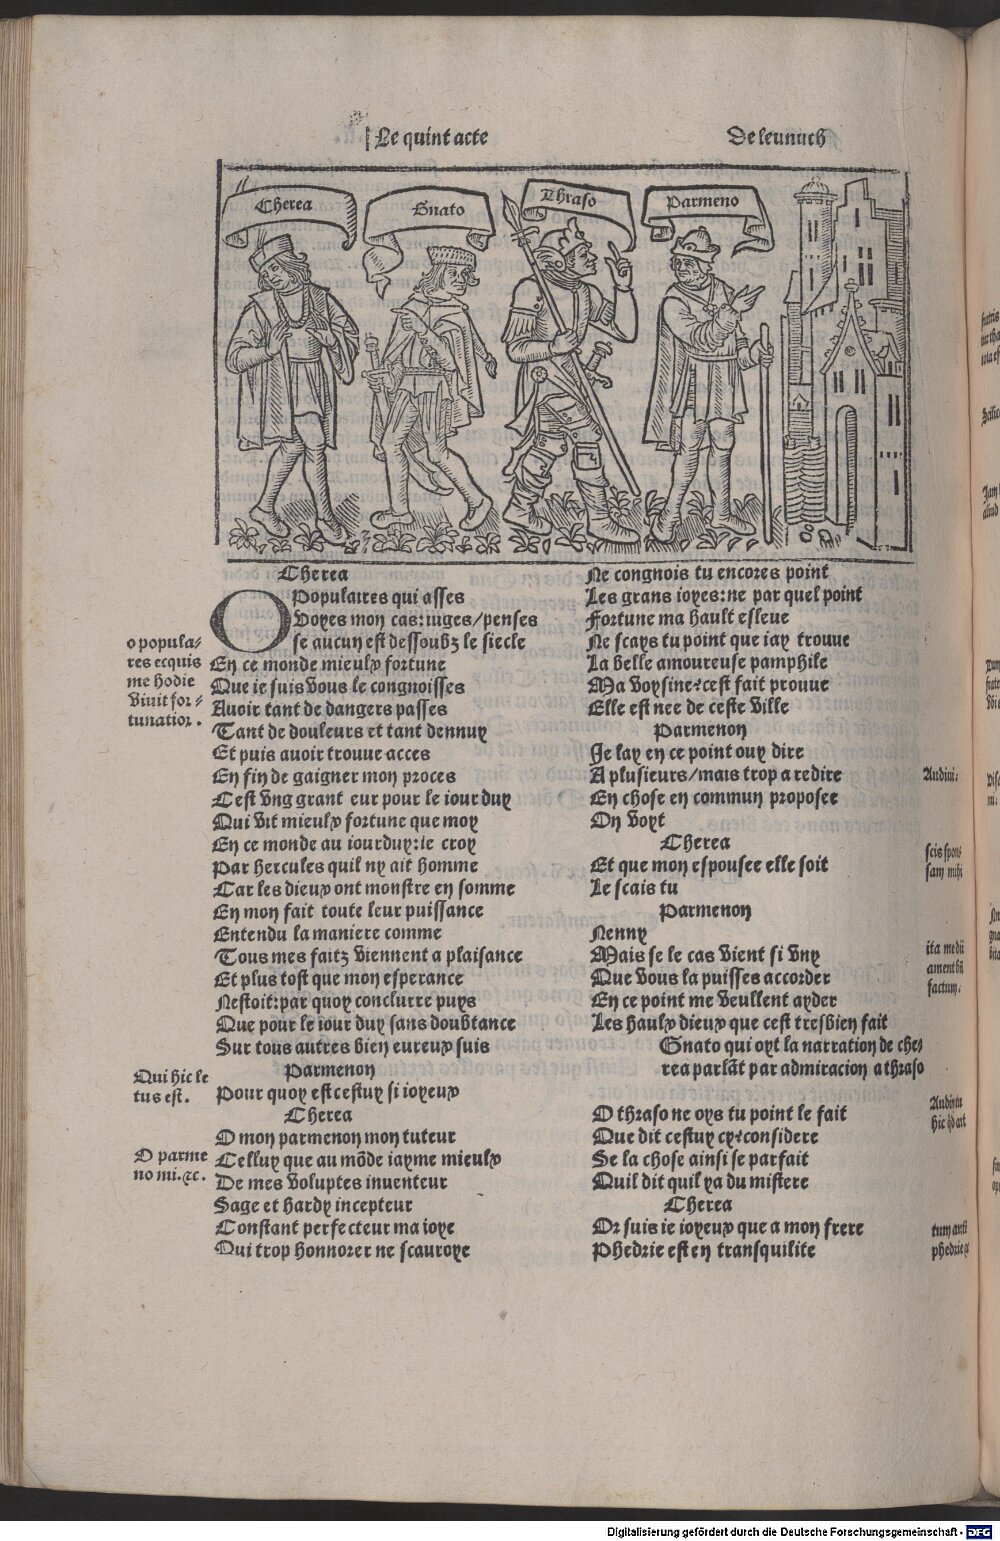 Le quint acte
De leunuch
Cherea
Gnato
Thraso
Parmeno
Cherea
O Populaires qui asses
Voyes mon cas: iuges/penses
se aucun est dessoubz le siecle
En ce monde mieulx fortune
Que ie suis vous le congnoisses
Avoir tant de dangers passes
Tant de douleurs et tant dennuy
Et puis avoir trouve acces
En fin de gaigner mon proces
Cest ung grant eur pour le iour duy
Qui vit mieulx fortune que moy
En ce monde au iourduy: ie croy
Par hercules quil ny ait homme
Car les dieux ont monstre en somme
En mon fait toute leur puissance
Entendu la maniere comme
Tous mes faitz viennent a plaisance
Et plus tost que mon esperance
Nestoit: par quoy conclurre puys
Que pour le iour duy sans doubtance
Sur tous autres bien eureux suis
Parmenon
Pour quoy est cestuy si ioyeux
Cherea
O mon parmenon mon tuteur
Celluy que au mõde iayme mieulx
De mes voluptes inventeur
Sage et hardy incepteur
Constant perfecteur ma ioye
Qui trop honnorer ne scauroye
o popula-
res ecquis
me hodie
vivit for-
tunatior.
Qui hic le
tus est.
O parme
no mi.⁊c.
Ne congnois tu encores point
Les grans ioyes: ne par quel point
Fortune ma hault esleue
Ne scays tu point que iay trouue
La belle amoureuse pamphile
Ma voysine? cest fait prouue
Elle est nee de ceste ville
Parmenon
Je lay en ce point ouy dire
A plusieurs/mais trop a redire
En chose en commun proposee
On voyt
Cherea
Et que mon espousee elle soit
Le scais tu
Parmenon
Nenny
Mais se le cas vient si uny
Que vous la puisses accorder
En ce point me veullent ayder
Les haulx dieux que cest tresbien fait
Gnato qui oyt la narration de che-
rea parlãt par admiracion a thraso
O thraso ne oys tu point le fait
Que dit cestuy cy? considere
Se la chose ainsi se parfait
Quil dit quil ya du mistere
Cherea
Or suis ie ioyeux que a mon frere
Phedrie est en transquilite
Audiui.
scis spon-
sam mihi
ita me dii
ament bñ
factum.
Audin tu
hic qd ait
tum autē
phedrie
Digitalisierung gefördert durch die Deutsche Forschungsgemeinschaft - DFG